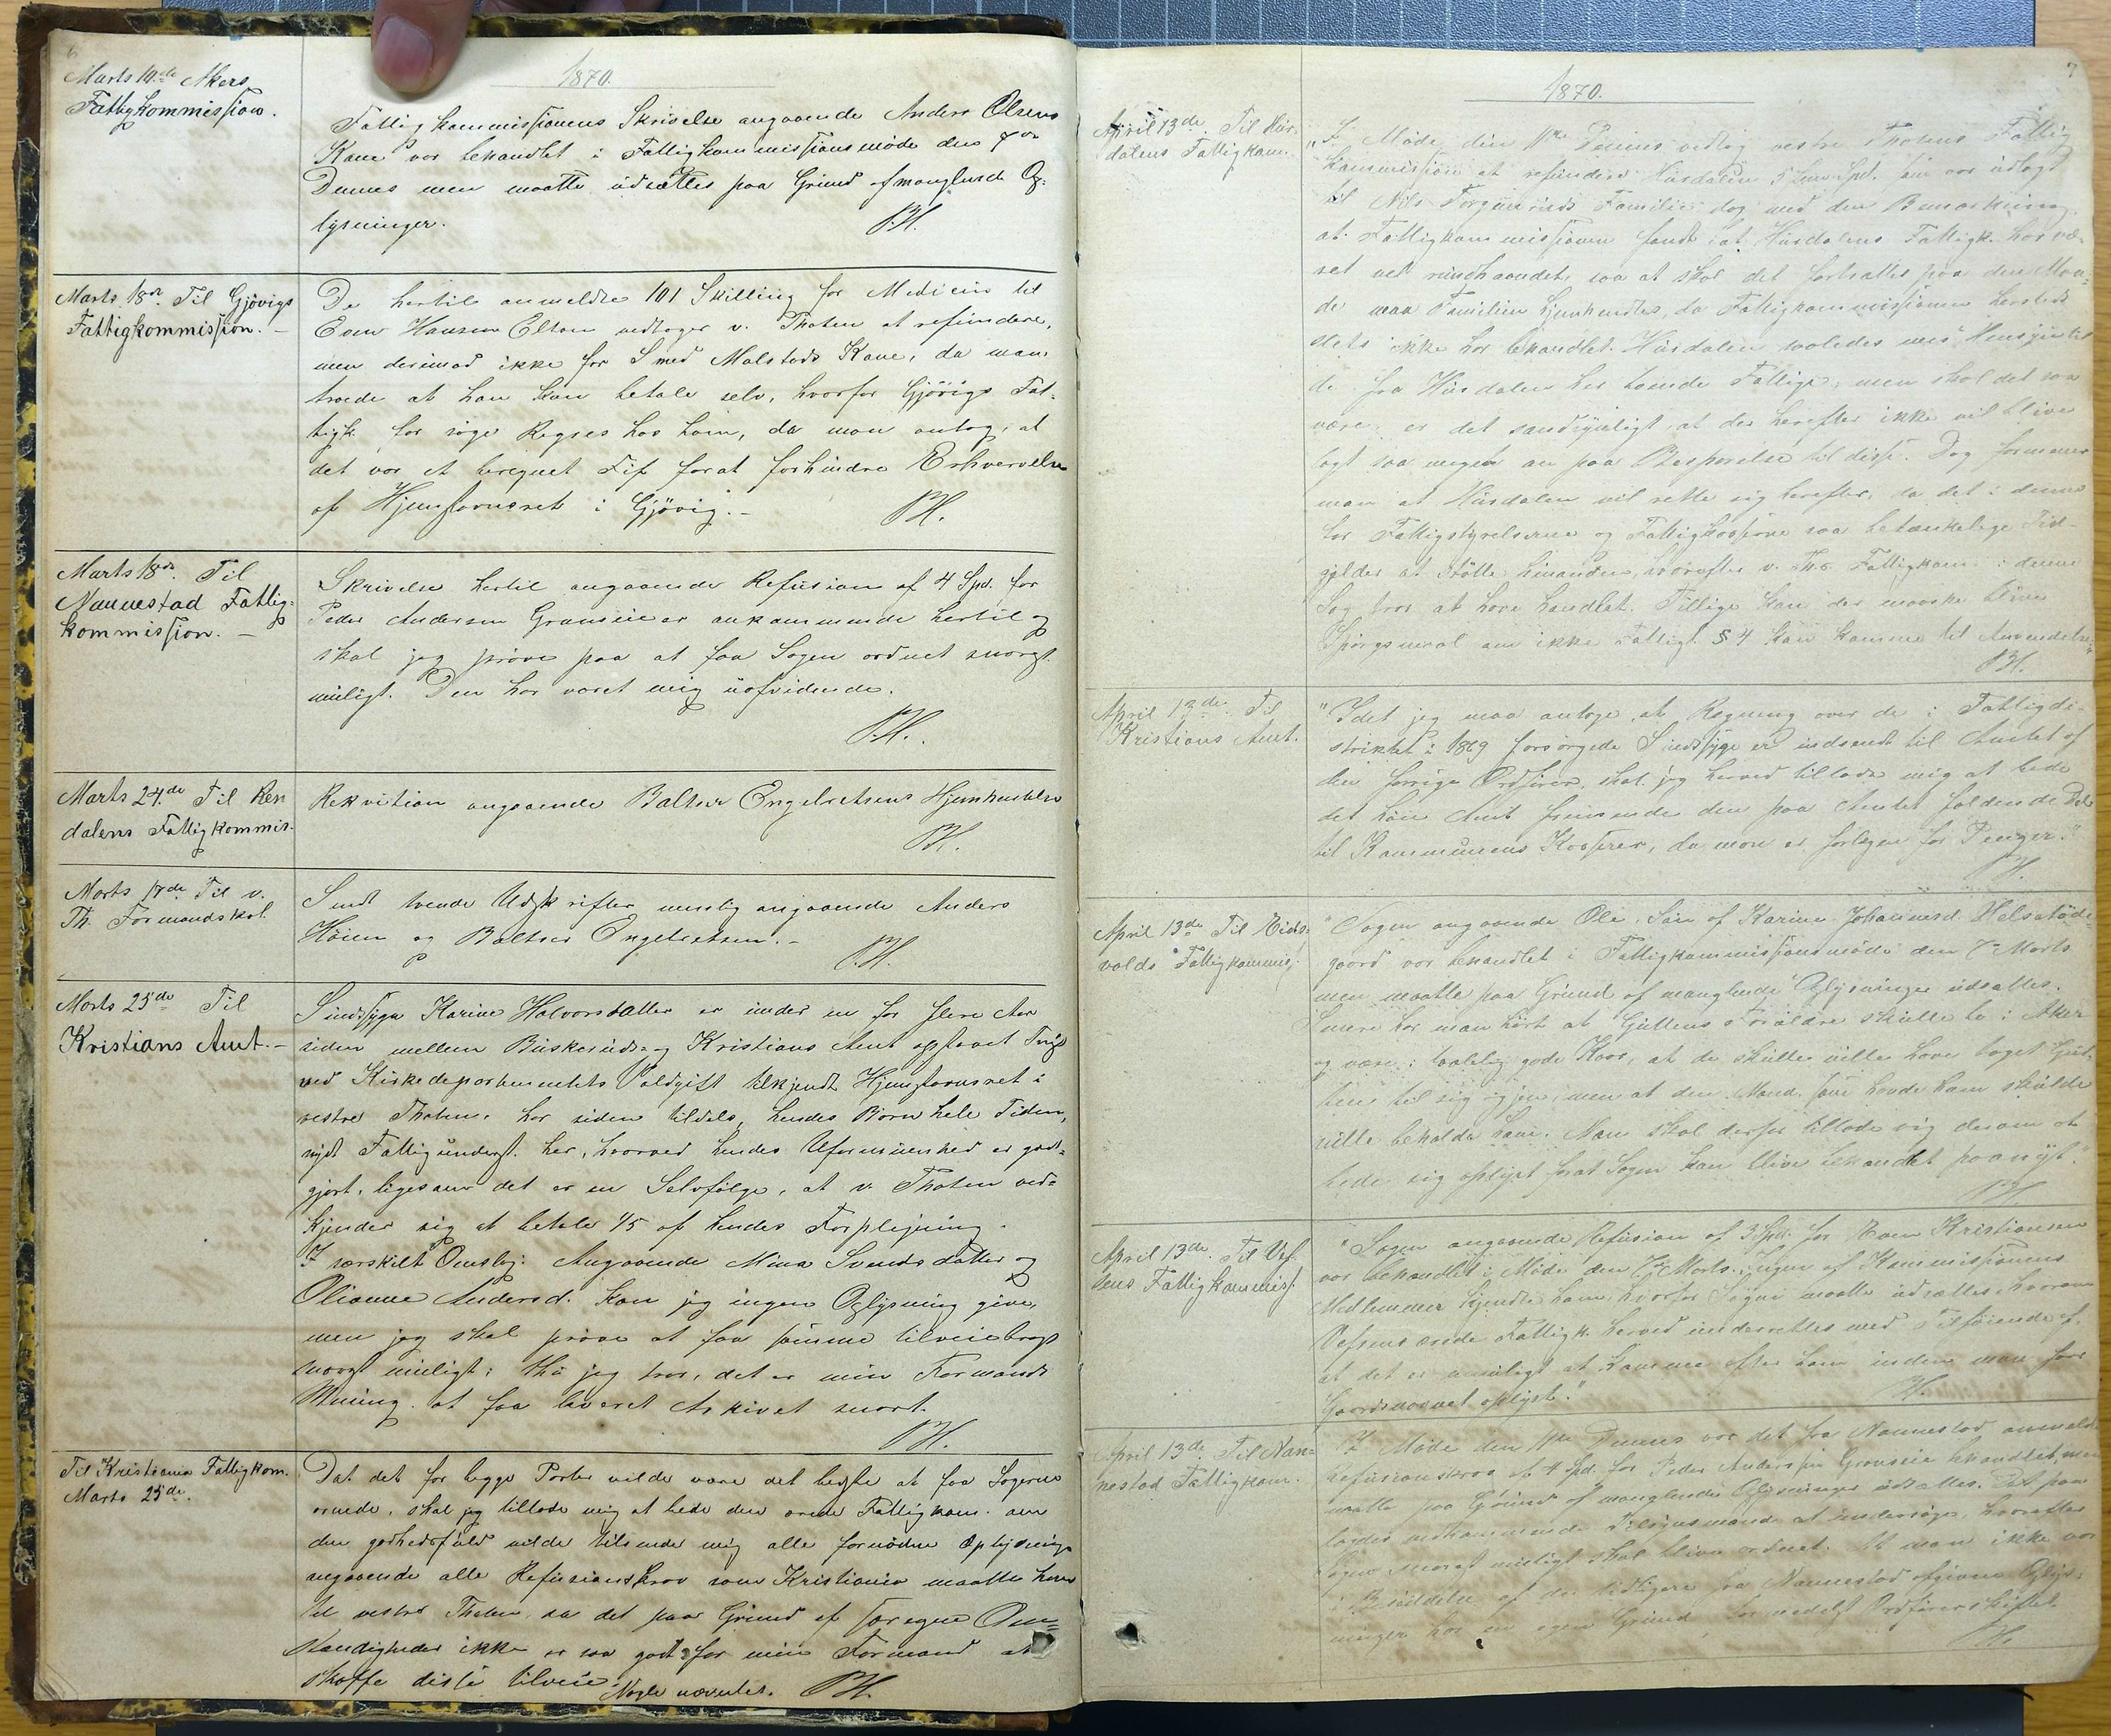 6
1870.
Marts 10de Akers
Fattigkommission.
Fattigkommissionens Skrivelse angaaende Anders Olsens
Kone var behandlet i Fattigkommissionsmøde den
Dennes men maatte udsættes paa Grund af manglende Op-
lysninger.
PH.
Marts 18de Til Gjövigs
Fattigkommission. –
De hertil anmeldte 101 Skilling for Medicin til
Even Hansen Elton vedtoges v. Thoten at refundere,
men derimod ikke for Smed Malstads Kone, da man
troede at han kan betale selv, hvorfor Gjövigs Fat-
tigk. for söge Regres hos ham, da man antog, at
det var et beregnet Fif forat forhindre Erhvervelse
af Hjemstavnsret i Gjövig. –
PH.
Marts 18de. Til
Nannestad Fattig-
kommission. –
Skrivelse hertil angaaende Refusion af 4 Spd. for
Peder Andersen Granseie er ankommende hertil og
skal jeg pröve paa at faa Sagen ordnet snarest
muligt. Den har været mig uafvidende.
PH.
Marts 24.de Til Ren
dalens Fattigkommis.
Rekvition angaaende Baltser Engelretsens Hjemhentelse
PH.
Marts 17de Til v.
Th. Formandskab.
Sendt tvende Udskrifter nemlig angaaende Anders
Höien og Baltser Engebretsen. –
PH.
Marts 25de Til
Kristians Amt. –
Sindssyge Karine Halvorsdatter er under en for flere Aar
siden mellem Buskeruds og Kristians Amt opstaaet Tvist
ved Kirkedepartementets Voldgift tilkjendt Hjemstavnsret i
vestre Thoten, har siden tildels, hendes Börn hele Tiden,
nydt Fattigunderst. her, hvorved hendes Uformuenhed er godt-
gjort, ligesom det er en Selvfölge, at v. Thoten ved-
kjender sig at betale 1/5 af hendes Forplejning.
I særskilt Omslag: Angaaende Mina Svendsdatter og
Olianne Andersd. kan jeg ingen Oplysning give,
men jeg skal pröve at faa samme tilveiebragt
snarest muligt; thi jeg tror, det er min Formands
Mening at faa leveret Arkivet snart.
PH.
Til Kristiania Fattigkom.
Marts 25de.
Dat det for begge Parter vilde være det bedste at faa Sagerne
ornede, skal jeg tillade mig at bede den ærede Fattigkom. om
den godhedsfuld vilde tilsende mig alle fornödne Oplysninger
angaaende alle Refusionskrav som Kristiania maatte have
til vestre Thoten, da det paa Grund af foregne Om-
stændigheder ikke er saa godt for min Formand at
skaffe disse tilveie. Nogle nævntes. PH.
7
1870.
April 13de. Til Hur-
dalens Fattigkom.
„I Möde den 11te Dennes vedtog vestre Thotens Fattig
kommission at refundere Hurdalen 5 Spd. som var udlagt
til Nils Torgunruds Familie, dog med den Bemærkning
at Fattigkommissionen fandt, at Hurdalens Fattigk. har væ-
ret vel rundhaandet, saa at skal det fortsættes paa den Maa-
de maa Familien hjemhentes, da Fattigkommissionen herstedt
stets ikke har behandlet Hurdalen saaledes med Hensyn til
de fra Hurdalen her boende Fattige, men skal det saa
være, er det sandsynligt, at der herefter ikke vil blive
lagt saa megen an paa Besparelse til disse. Dog formener
man at Hurdalen vil rette sig herefter, da det i denne
for Fattigstyrelserne og Fattigkasserne saa betænkelige Tid
gjelder at stötte hinanden, hvorefter v. Th. Fattigkom. i denne
Sag tror at have handlet. Tillige kan der maaske blive
Spörgsmaal om ikke Fattigl. § 4 kan komme til Anvendelse."
PH.
April 13de. Til
Kristians Amt.
"Idet jeg maa antage, at Regning over de i Fattigdi-
striktet i 1869 forsörgede Sindssyge er indsendt til Amtet af
den forrige Ordförer, skal jeg herved tillade mig at bede
det höie Amt fremsende den paa Amtet faldende Del
til Kommunens Kasserer, da man er forlegen for Penger."
PH.
April 13de Til Eids-
volds Fattigkommis.
"Sagen angaaende Ole, Sön af Karine Johannesd. Helsetöde-
gaard var behandlet i Fattigkommissionsmöde den 7de Marts
men maatte paa Grund af manglende Oplysninger udsættes.
Senere har man hört at Guttens Forældre skulle bo i Aker
og være i taalelig gode Kaar, at de skulle ville have taget Gut-
ten til sig igjen, men at den Mand, som havde ham skulde
ville beholde ham. Man skal derfor tillade sig derom at
bede sig oplyst forat Sagen kan blive behandlet paanyt."
PH.
April 13de. Til Vef-
sens Fattigkommis.
"Sagen angaaende Refusion af 3 Spd. for Even Kristiansen
var behandlet i Möde den 7de Marts. Ingen af Kommissionens
Medlemmer kjendte ham, hvorfor Sagen maatte udsættes, hvorom
Vefsens ærede Fattigk. herved underrettes med Tilföiende af,
at det er umuligt at komme efter ham inden man faar
Gaardsnavnet oplyst."
PH.
April 13de. Til Nan-
nestad Fattigkom.
"I Möde den 11te Dennes var det fra Nannestad anmeldte
Refusionskrav af 4 Spd. for Peder Andersen Granseie behandlet, men
maatte paa Grund af manglende Oplysninger udsættes. Det paa
lagdes vedkommende Tilsynsmand at undersöge, hvorefter
Sagen snarest muligt skal blive ordnet. At man ikke var
i Besiddelse af de tidligere fra Nannestad afgivne Oplys-
ninger har en egen Grund, formedelst Ordförerskiftet
PH.